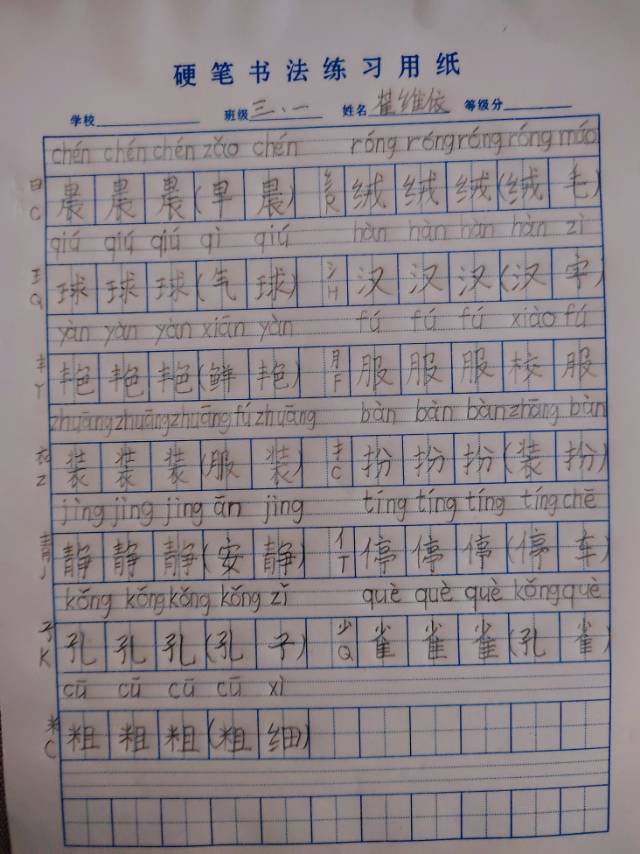 硬笔书法练习用纸
学校 班级 三、一 姓名 翟维俊 等级分
chén chén chén zǎo chén róng róng róng róng máo
日 C 晨 晨 晨 (早 晨) 纟 R 绒 绒 绒 (绒 毛)
qiú qiú qiú qì qiú hàn hàn hàn hàn zì
王 Q 球 球 球 (气 球) 氵 H 汉 汉 汉 (汉 字)
yàn yàn yàn xiān yàn fú fú fú xiào fú
丰 Y 艳 艳 艳 (鲜 艳) 月 F 服 服 服 校 服
zhuāng zhuāng zhuāng fú zhuāng bàn bàn bàn zhāng bàn
衣 Z 装 装 装 (服 装) 扌 C 扮 扮 扮 (装 扮)
jìng jìng jìng ān jìng tíng tíng tíng tíng chē
青 J 静 静 静 (安 静) 亻 T 停 停 停 (停 车)
kǒng kǒng kǒng kǒng zǐ què què què kǒng què
子 K 孔 孔 孔 (孔 子) 少 Q 雀 雀 雀 (孔 雀)
cū cū cū cū xì
米 C 粗 粗 粗 (粗 细)